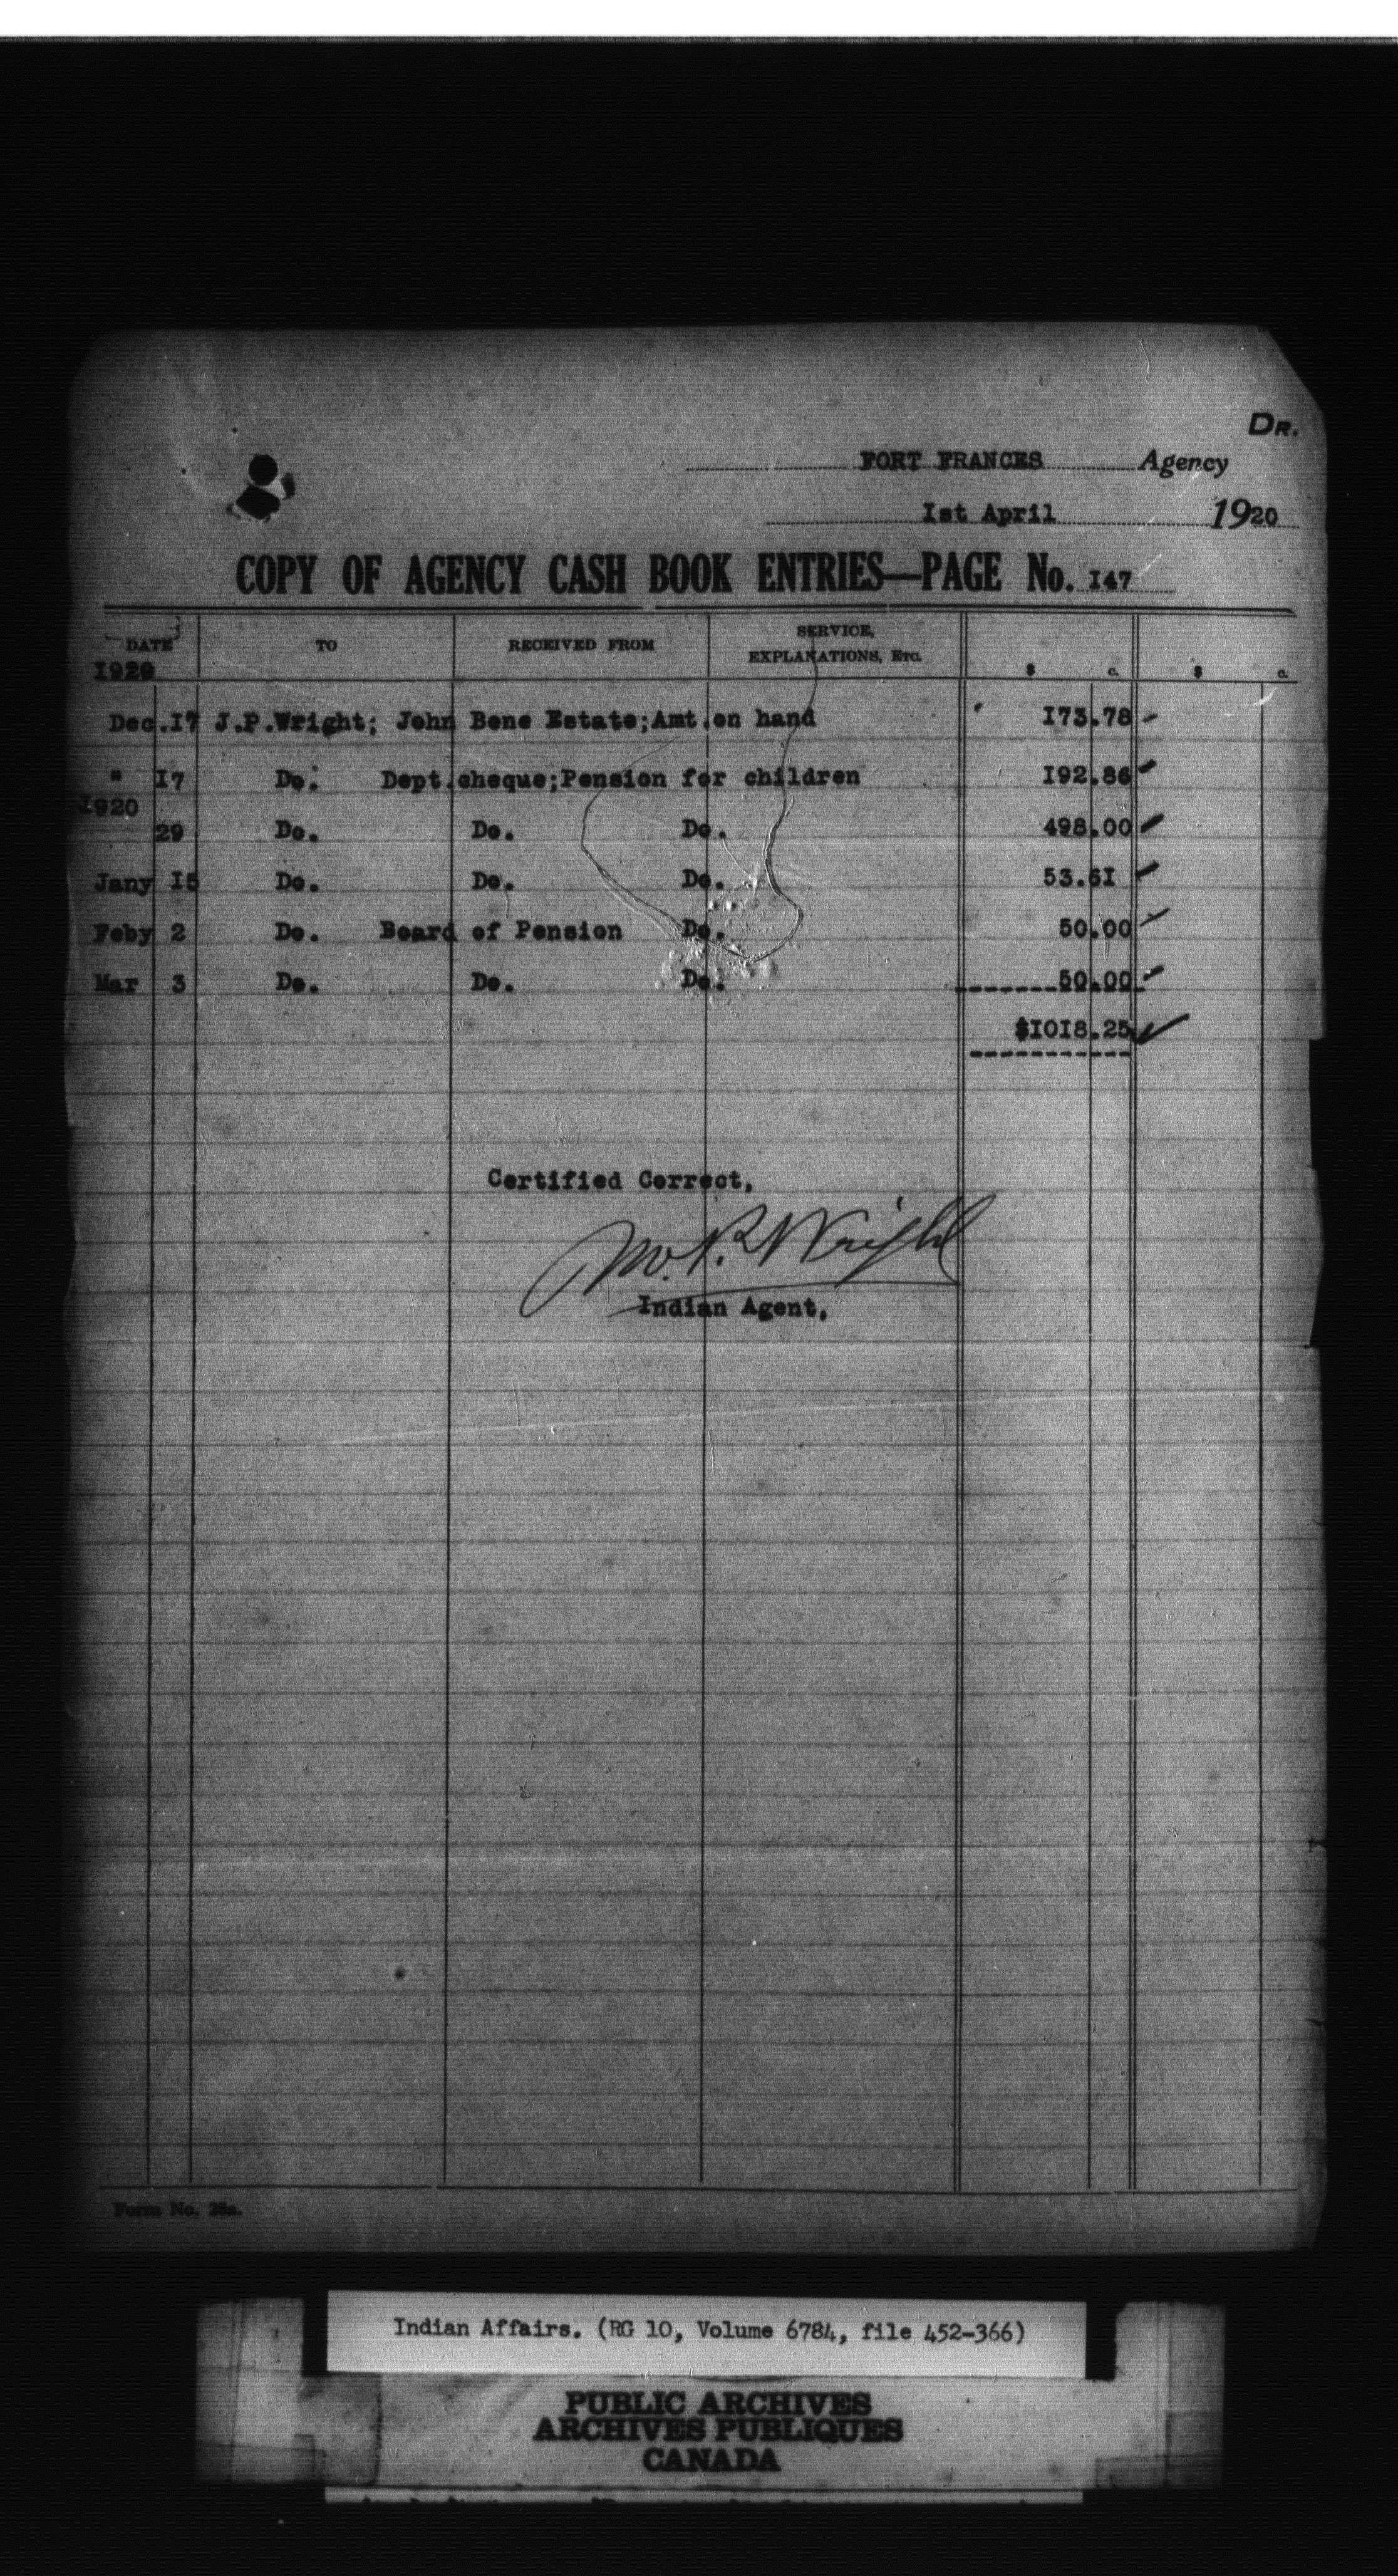 DR.
FORT FRANCES Agency
1st April 1920
COPY OF AGENCY CASH BOOK ENTRIES—PAGE No. 147
DATE TO RECEIVED FROM SERVICE, EXPLANATIONS, ETC. $ c. $ c.
1920
Dec.17 J.P.Wright; John Bone Estate;Amt.on hand 173.78
" 17 Do. Dept.cheque;Pension for children 192.86
1920
29 Do. Do. Do. 498.00
Jany 15 Do. Do. Do. 53.61
Feby 2 Do. Board of Pension Do. 50.00
Mar 3 Do. Do. Do. 50.00
$1018.25
Certified Correct,
Wright
Indian Agent.
Form No.
Indian Affairs. (RG 10, Volume 6784, file 452-366)
PUBLIC ARCHIVES
ARCHIVES PUBLIQUES
CANADA